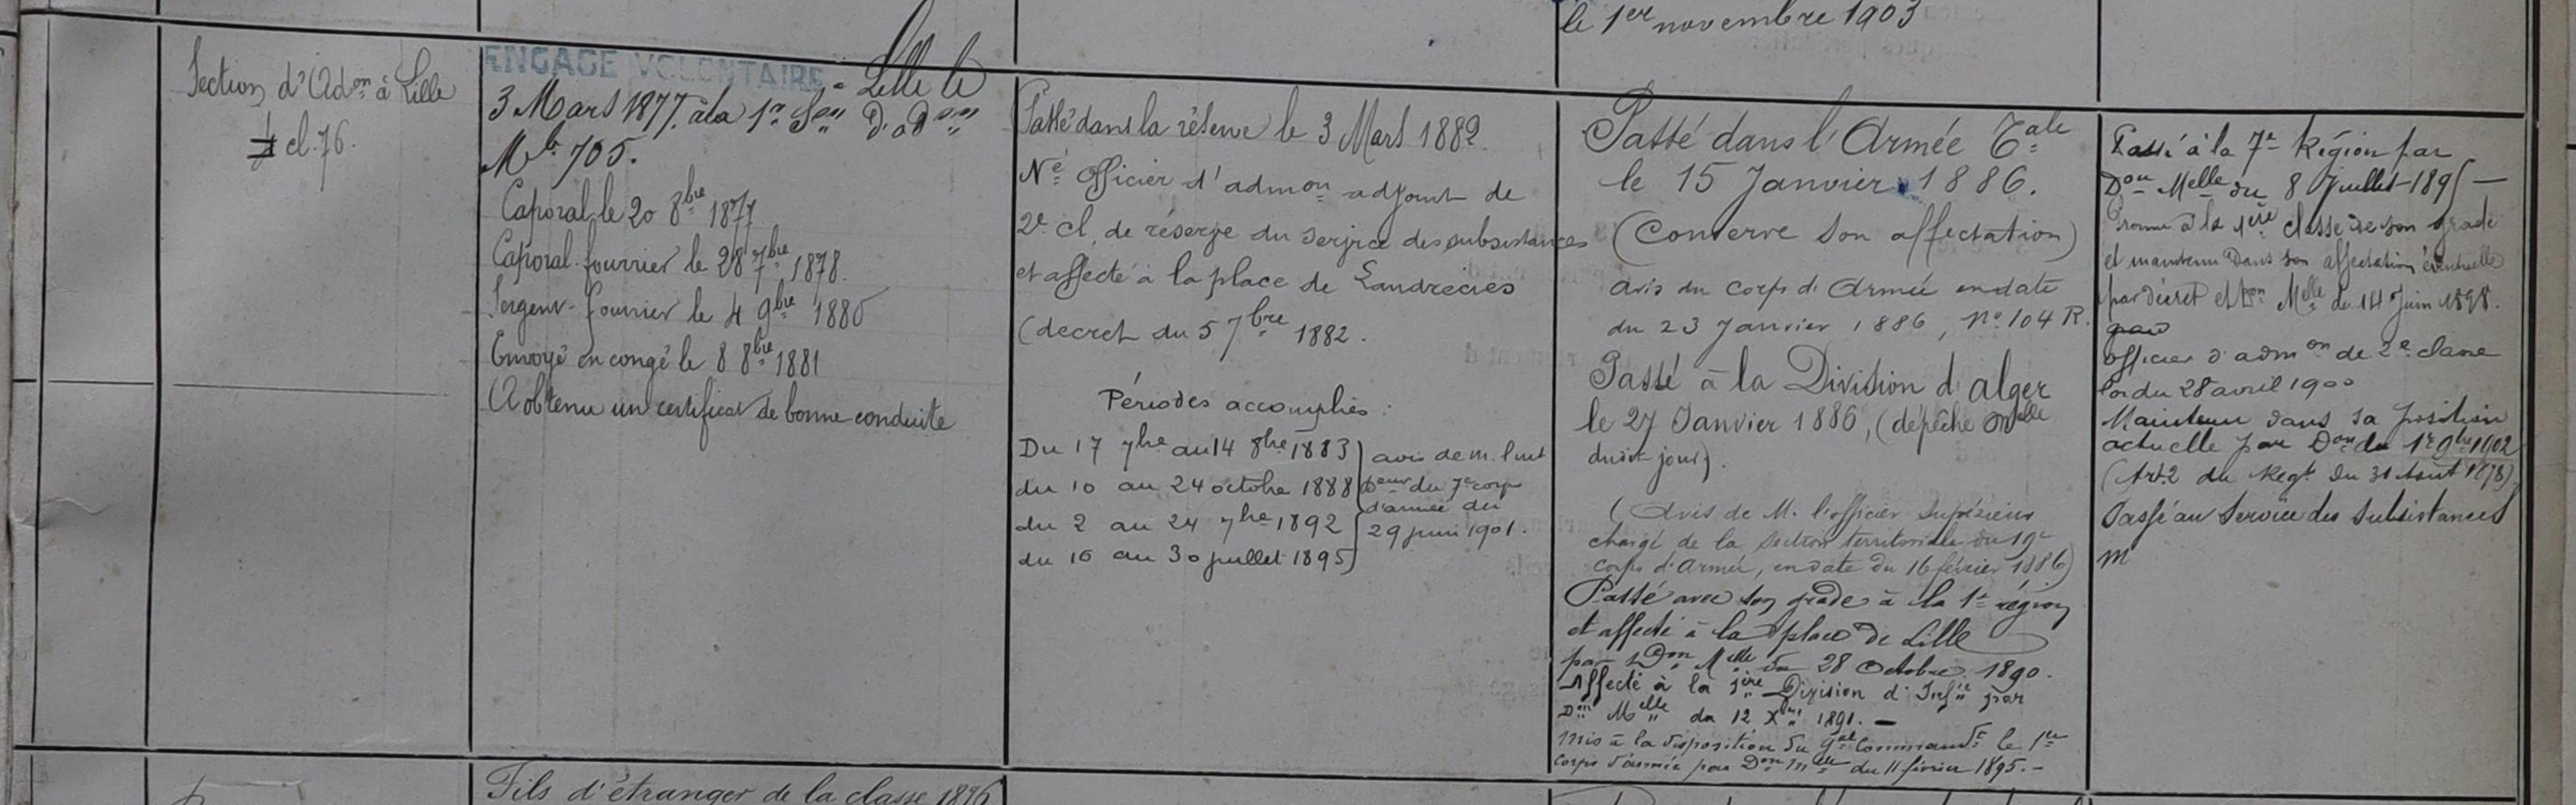 le 1er novembre 1903
Section d'Adon à Lille
cl. 76.
ENGAGÉ VOLONTAIRE à Lille le
3 Mars 1877. à la 1re Son d'adon
Mle 705.
Caporal le 20 8bre 1877
Caporal fourrier le 28 7bre 1878.
Sergent-fourrier le 4 9bre 1880
Envoyé en congé le 8 8bre 1881
A obtenu un certificat de bonne conduite
Passé dans la réserve le 3 Mars 1882.
Né Officier d'admon adjoint de
2e cl. de réserve du service des subsistances
et affecté à la place de Landrecies
(decret du 5 7bre 1882.
Périodes accomplies :
Du 17 7bre au 14 8bre 1883
du 10 au 24 octobre 1888
du 2 au 24 7bre 1892
du 16 au 30 juillet 1895
avis de m. l'int
Deur du 7e corps
d'armée du
29 juin 1901.
Passé dans l'Armée Tale
le 15 Janvier 1886.
(Conserve son affectation)
avis du corps d'Armée en date
du 23 Janvier 1886, No 104 R.
Passé à la Division d'Alger
le 27 Janvier 1886, (dépêche Melle
dudit jour).
(Avis de M. l'officier supérieur
chargé de la section territoriale du 19e
corps d'Armée, en date du 16 février 1886)
Passé avec son grade à la 1re région
et affecté à la place de Lille
par Don Melle du 28 Octobre 1890.
Affecté à la 1ère Division d'Infie par
Don Melle du 12 Xbre 1891. —
mis à la disposition du Gal Commandt le 1er
corps d'armée par Don Melle du 11 février 1895. —
Passé à la 7e Région par
Don Melle du 8 Juillet 1895 —
Promu à la 1ère classe de son grade
et maintenu dans son affectation éventuelle
par décret et Don Melle du 14 Juin 1898.
officier d'admon de 2e classe
loi du 28 avril 1900
Maintenu dans sa position
actuelle par Don du 1er 9bre 1902
(Art. 2 du Regt du 31 Août 1878)
Passé au Service des Subsistances
m
Fils d'étranger de la classe 1896